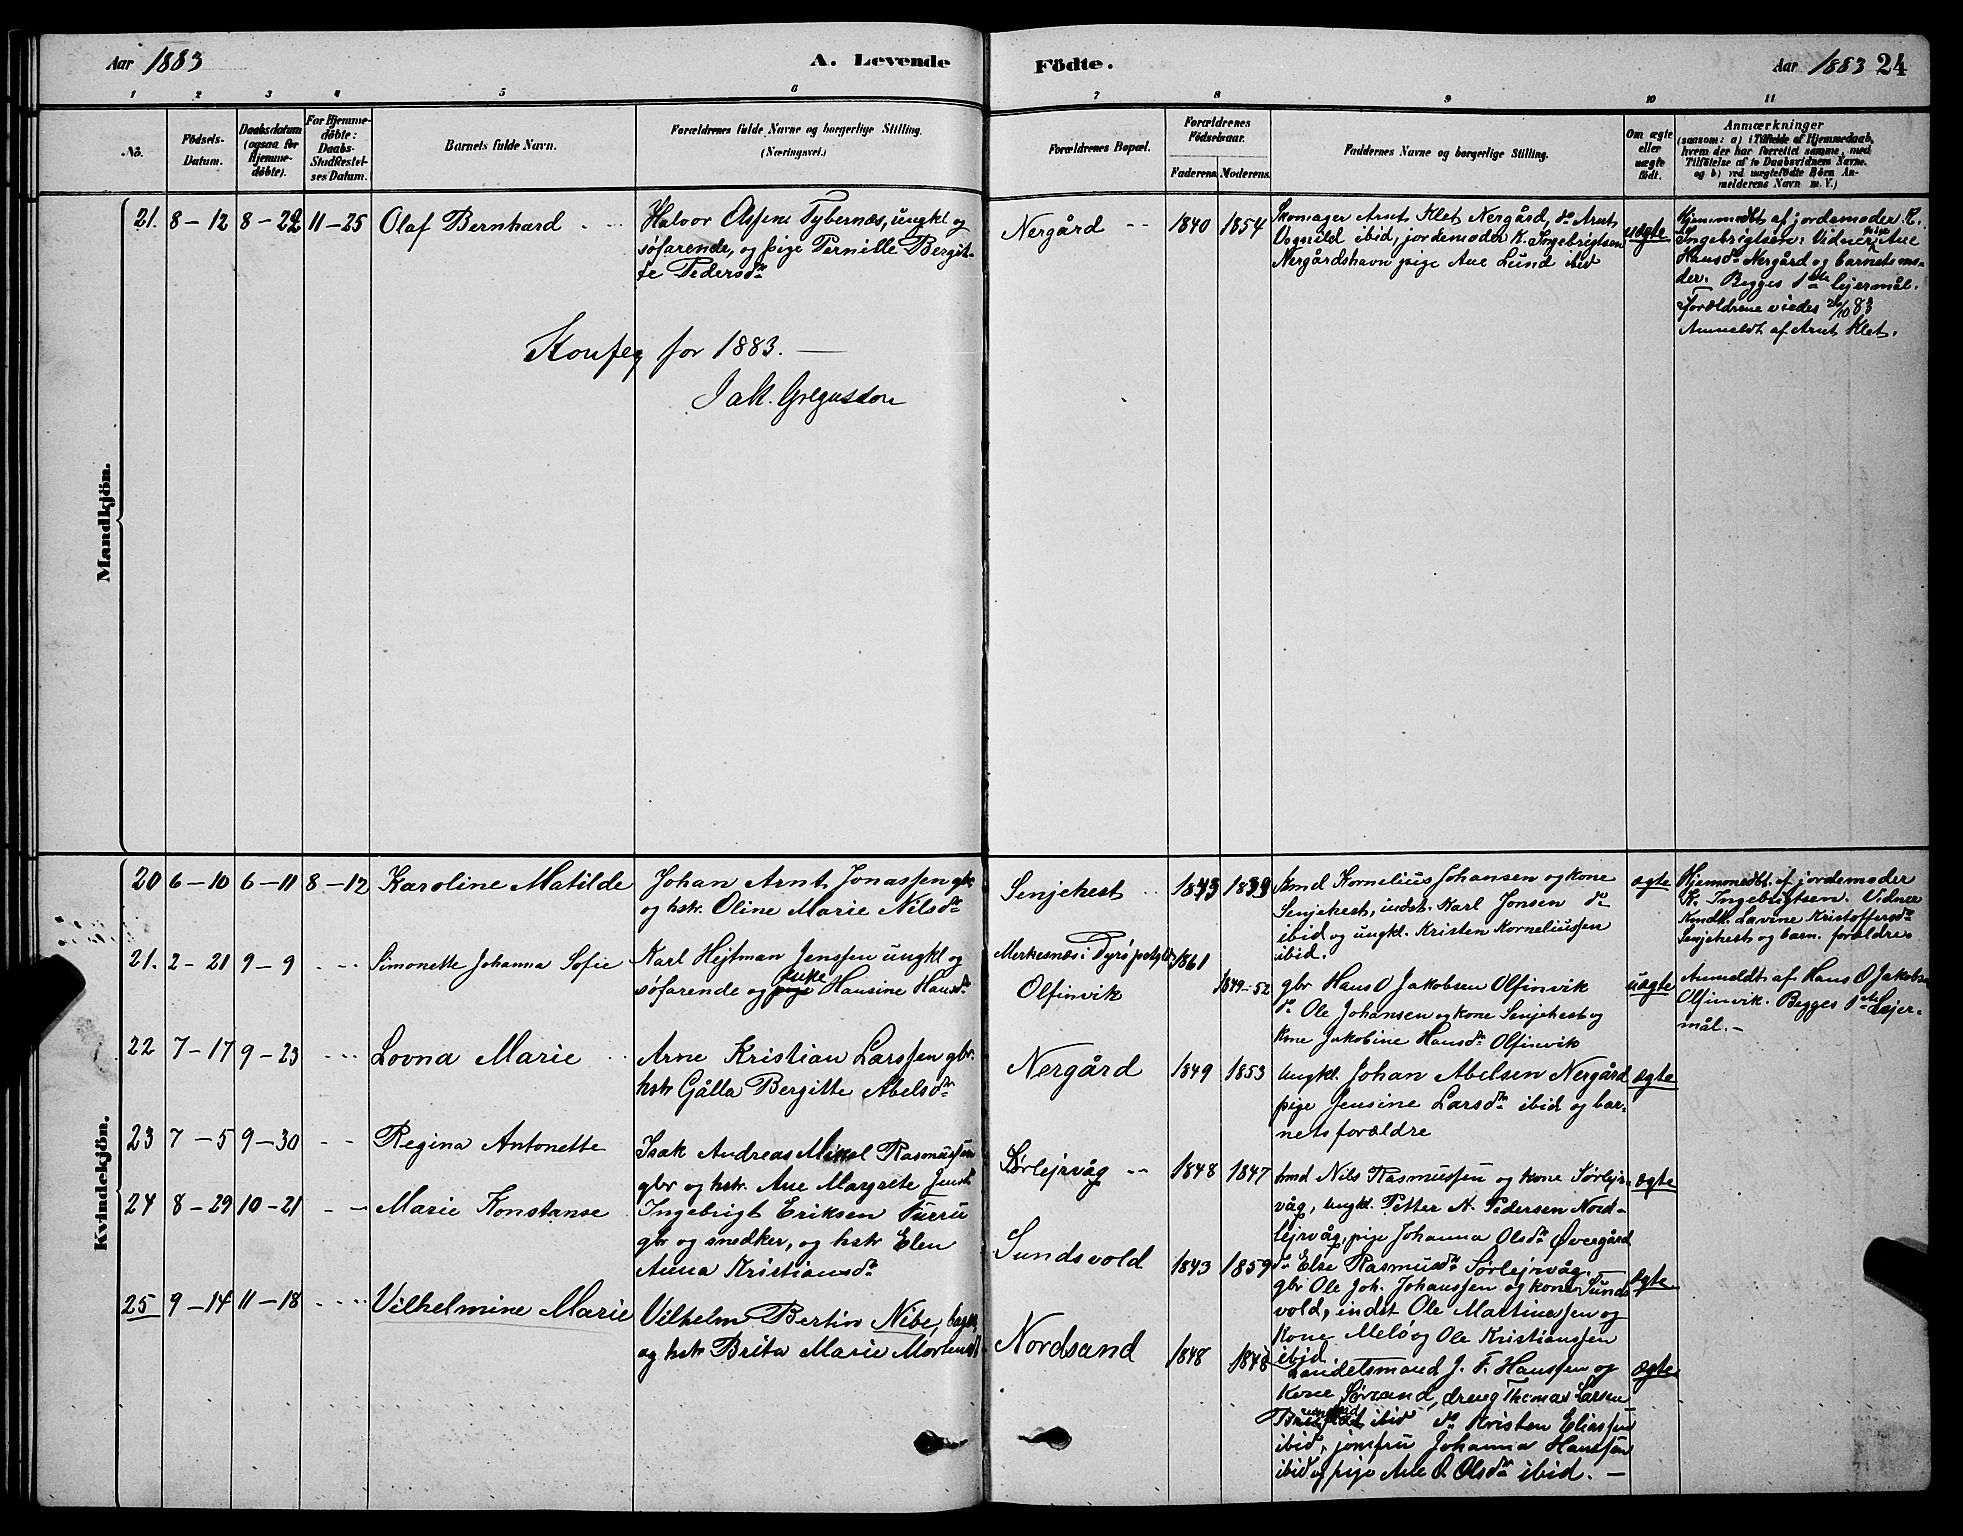 Aar 1883
A. Levende
Födte.
Aar 1883 24
1 2 3 4 5 6 7 8 9 10 11
No.
Födsels-
Datum.
Daabsdatum
(ogsaa for
Hjemme-
döbte).
For Hjemme-
döbte:
Daabs-
Stadfæstel-
ses Datum.
Barnets fulde Navn.
Forældrenes fulde Navne og borgerlige Stilling.
(Næringsvei.)
Forældrenes Bopæl.
Forældrenes
Födselsaar.
Faderens. Moderens.
Faddernes Navne og borgerlige Stilling.
Om ægte
eller
uægte
födt.
Anmærkninger
(saasom: a) i Tilfælde af Hjemmedaab,
hvem der har forrettet samme, med
Tilföielse af to Daabsvidners Navne.
og b) ved uægtefödte Börn An-
melderens Navn m. V.)
Mandkjön.
21. 8-12 8-22 11-25 Olaf Bernhard
Halvor Olssen Tybernæs, ungkl og
søfarende, og pige Pernille Bergit-
te Pedersdr
Nergård 1840 1854
Skomager Arnt Klet Nergård, do Arnt
ibid, jordemoder K. Ingebrigtsen
Nergårdshavn pige Ane Lund ibid
uægte
Hjemmedbt af jordemoder K.
Ingebrigtsen: Vidner pige Ane
Hansdr Nergård og barnets mo-
der. Begges 1ste lejermål.
Forældrene viedes 26/10 83
Anmeldt af Arnt Klet.
for 1883.
Kvindekjön.
20 6-10 6-11 8-12 Karoline Matilde
Johan Arnt Jonassen gbr
og hstr. Oline Marie Nilsdr
Senjehest 1843 1839
kmd Kornelius Johansen og kone
Senjehest, indst. Karl Jonsen do
ibid og ungkl. Kristen Korneliussen
ibid.
ægte
Hjemmedbt. af jordemoder
K. Ingebrigtsen. Vidner
Kmdk. Lavine Kristoffersdr
Senjehest og barn. forældre
21. 2-21 9-9 Simonette Johanna Sofie
Karl Hejtman Jenssen ungkl og
søfarende og enke Hansine Hansdr
Merkesnæs i
Olfinvik
1861 1849-52
gbr Hans O Jakobsen Olfinvik
do Ole Johansen og kone Senjehest og
kone Jakobine Hansdr Olfinvik
uægte
Anmeldt af Hans O Jakobsen
Olfinvik. Begges 1ste Lejer-
mål.
22 7-17 9-23 Lovna Marie
Arne Kristian Larssen gbr.
hstr Gålla Bergitte Abelsdr
Nergård 1849 1853
Ungkl. Johan Abelsen Nergård
pige Jensine Larsdr ibid og bar-
nets forældre
ægte
23 7-5 9-30 Regina Antonette
Isak Andreas Mikal Rasmussen
gbr og hstr. Ane Margrete Jensdr
Sørlejrvåg 1848 1847
kmd Nils Rasmussen og kone Sørlejr-
våg, ungkl. Petter N. Pedersen Nord-
lejrvåg, pige Johanna Olsdr Øvergård
do Else Rasmusdr Sørlejrvåg.
ægte
24 8-29 10-21 Marie Konstanse
Ingebrigt Eriksen Furru
gbr og snedker, og hstr Elen
Anna Kristiansdr
Sundsvold 1843 1859
gbr Ole Joh. Johanssen og kone Sunds
vold, indst Ole Martinussen og
kone Melø og Ole Kristianssen
ibid
ægte
25 9-14 11-18 Vilhelmine Marie
Vilhelm Bertin Nibe,
og hstr Brita Marie Mortensdr
Nordsand 1848 1848
Landelsmand J. F. Hanssen og
kone Sørsand, dreng Thomas Larsen
ibid do Kristen Eliassen
ibid, jomfru Johanna Hanssen
ibid og pige Ane O. Olsdr ibid.
ægte